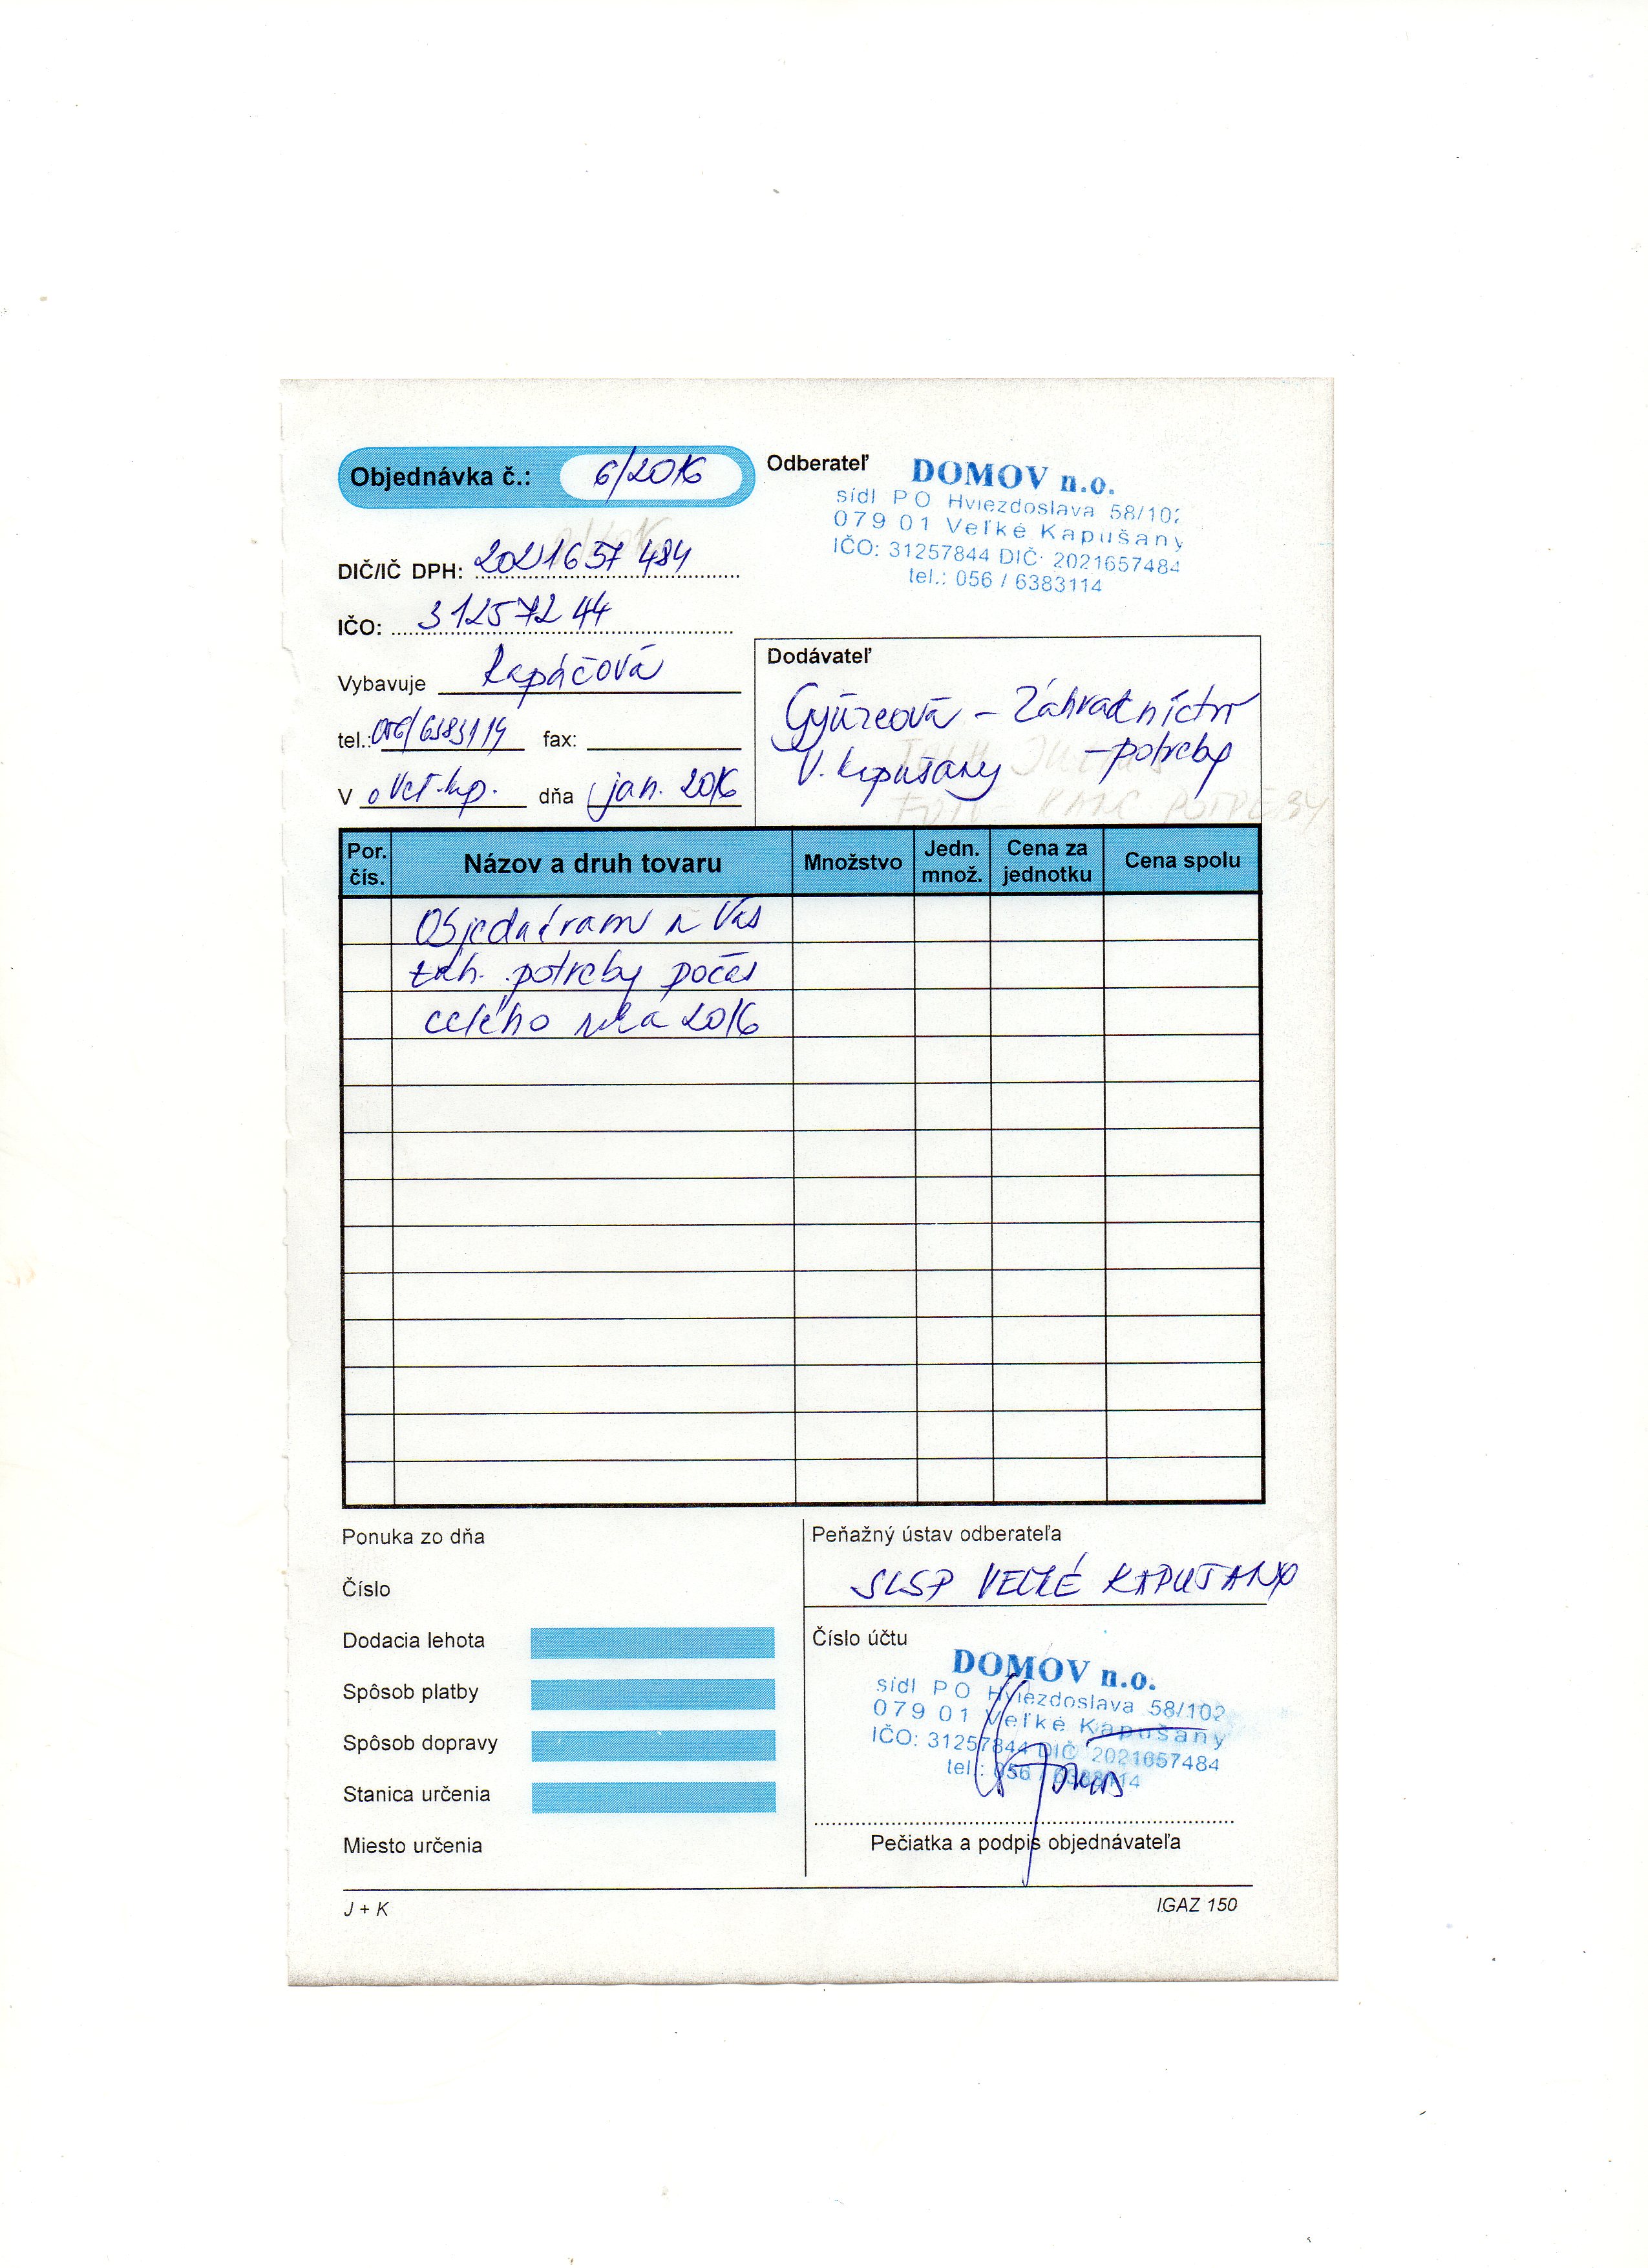 Objednávka č.: 6/2016
Odberateľ
DOMOV n.o.
sídl PO Hviezdoslava 58/102
079 01 Veľké Kapušany
IČO: 31257844 DIČ: 2021657484
tel.: 056 / 6383114
DIČ/IČ DPH: 2021657 484
IČO: 31257244
Vybavuje Kapáčová
tel.: 056/6383114 fax:
V dňa jan. 2016
Dodávateľ
Gyüreová - Záhradníctvo
V. Kapušany - potreby
Por. čís. Názov a druh tovaru Množstvo Jedn. množ. Cena za jednotku Cena spolu
Objednávam u Vás
záh. potreby počas
celého roka 2016
Ponuka zo dňa
Číslo
Dodacia lehota
Spôsob platby
Spôsob dopravy
Stanica určenia
Miesto určenia
Peňažný ústav odberateľa
SLSP VEĽKÉ KAPUŠANY
Číslo účtu
DOMOV n.o.
sídl PO Hviezdoslava 58/102
079 01 Veľké Kapušany
IČO: 31257844 DIČ 2021657484
tel.: 056 / 6383114
Pečiatka a podpis objednávateľa
J + K
IGAZ 150